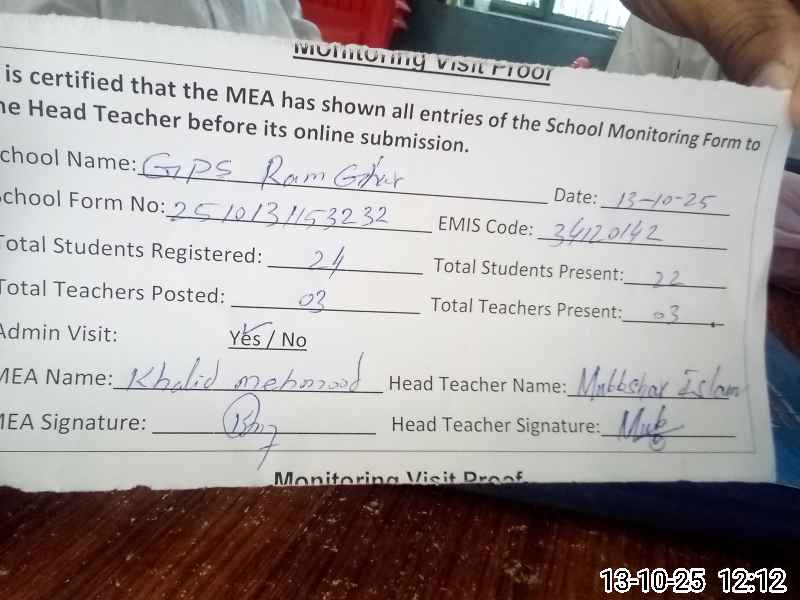 Monitoring Visit Proof
is certified that the MEA has shown all entries of the School Monitoring Form to
he Head Teacher before its online submission.
chool Name: GPS Ram Ghar Date: 13-10-25
chool Form No: 2510131153232 EMIS Code: 34120142
Total Students Registered: 24 Total Students Present: 22
Total Teachers Posted: 03 Total Teachers Present: 03
Admin Visit: Yes / No
MEA Name: Khalid mehmood Head Teacher Name: Mubbshar Islam
MEA Signature: Head Teacher Signature:
Monitoring Visit Proof
13-10-25 12:12